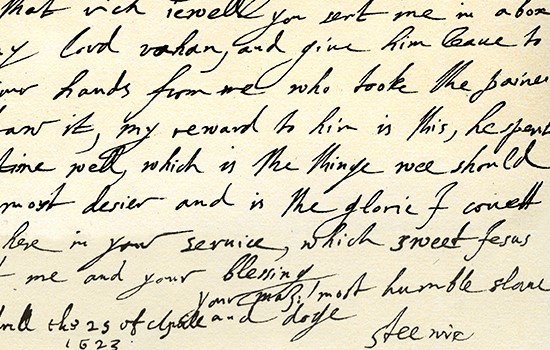 that rich iewell you sent me in a box
my lord vahan, and give him leave to
your hands from me who tooke the paines
draw it, my reward to him is this, he spent
time well, which is the thinge wee should
most desier and is the glorie I covett
here in your service, which sweet Jesus
me and your blessing
your mag: most humble slave
the 29 of and doge
Steenie
1623